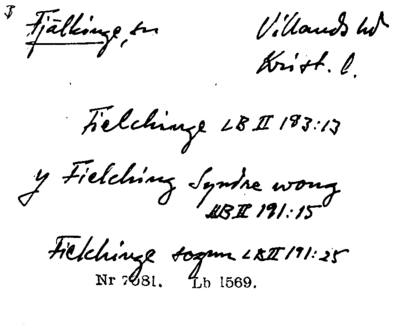 Fjälkinge, sn Villands hd
Krist. l.
Fielchinge LB II 183:13
y Fielching Syndre wong
LB II 191:15
Fielchinge sogun LB II 191:25
Nr 7081. Lb 1569.